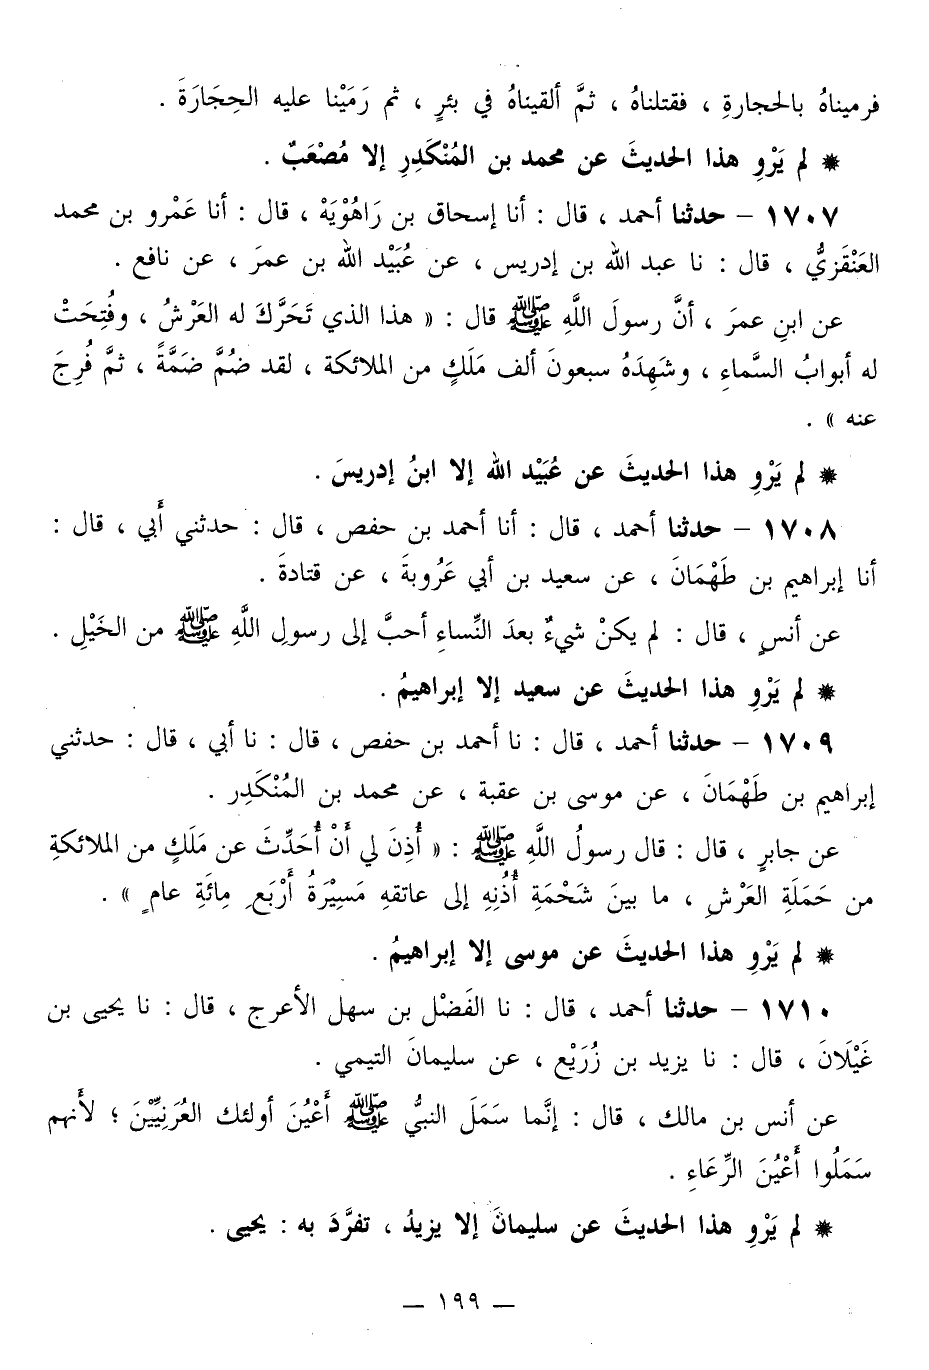 فرميناهُ بالحجارةِ ، فقتلناهُ ، ثمَّ ألقيناهُ في بئرٍ ، ثم رَمَيْنا عليه الحِجَارَةَ .
* لم يَرْوِ هذا الحديثَ عن محمد بن المُنْكَدِرِ إلا مُصْعَبٌ .
١٧٠٧ – حدثنا أحمد ، قال : أنا إسحاق بن رَاهُوْيَهْ ، قال : أنا عَمْرو بن محمد
العَنْقَزِيُّ ، قال : نا عبد الله بن إدريس ، عن عُبَيْد الله بن عمرَ ، عن نافع .
عن ابنِ عمرَ ، أنَّ رسولَ اللَّهِ ﷺ قال : « هذا الذي تَحَرَّكَ له العَرْشُ ، وفُتِحَتْ
له أبوابُ السَّماءِ ، وشَهِدَهُ سبعونَ ألف مَلَكٍ من الملائكة ، لقد ضُمَّ ضَمَّةً ، ثمَّ فُرِجَ
عنه » .
* لم يَرْوِ هذا الحديثَ عن عُبَيْد الله إلا ابنُ إدريسَ .
١٧٠٨ – حدثنا أحمد ، قال : أنا أحمد بن حفص ، قال : حدثني أَبي ، قال :
أنا إبراهيم بن طَهْمَانَ ، عن سعيد بن أبي عَرُوبةَ ، عن قتادةَ .
عن أنسٍ ، قال : لم يكنْ شيءٌ بعدَ النِّساءِ أحبَّ إلى رسولِ اللَّهِ ﷺ من الخَيْلِ .
* لم يَرْوِ هذا الحديثَ عن سعيد إلا إبراهيمُ .
١٧٠٩ – حدثنا أحمد ، قال : نا أحمد بن حفص ، قال : نا أبي ، قال : حدثني
إبراهيم بن طَهْمَانَ ، عن موسى بن عقبة ، عن محمد بن المُنْكَدِر .
عن جابرٍ ، قال : قال رسولُ اللَّهِ ﷺ : « أُذِنَ لي أَنْ أُحَدِّثَ عن مَلَكٍ من الملائكةِ
من حَمَلَةِ العَرْشِ ، ما بينَ شَحْمَةِ أُذُنِهِ إلى عاتقهِ مَسِيْرَةُ أَرْبَعِ مِائَةِ عام » .
* لم يَرْوِ هذا الحديثَ عن موسى إلا إبراهيمُ .
١٧١٠ – حدثنا أحمد ، قال : نا الفَضْل بن سهل الأعرج ، قال : نا يحيى بن
غَيْلَانَ ، قال : نا يزيد بن زُرَيْع ، عن سليمانَ التيمي .
عن أنس بن مالك ، قال : إنَّما سَمَلَ النبيُّ ﷺ أَعْيُنَ أولئك العُرَنِيِّيْنَ ؛ لأَنهم
سَمَلُوا أَعْيُنَ الرِّعَاءِ .
* لم يَرْوِ هذا الحديثَ عن سليمانَ إلا يزيدُ ، تفرَّدَ به : يحيى .
– ١٩٩ –